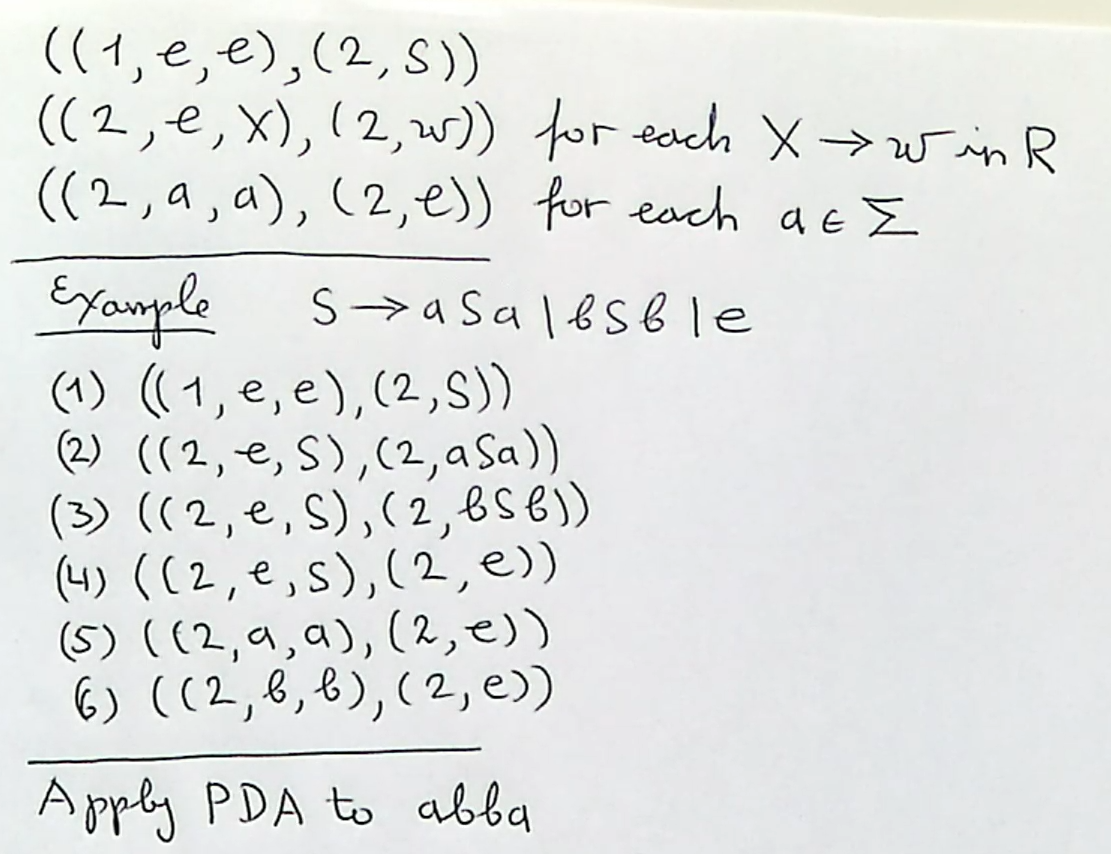 ((1, e, e), (2, S))
((2, e, X), (2, w)) for each X → w in R
((2, a, a), (2, e)) for each a ∈ Σ
Example S → aSa | bSb | e
(1) ((1, e, e), (2, S))
(2) ((2, e, S), (2, aSa))
(3) ((2, e, S), (2, bSb))
(4) ((2, e, S), (2, e))
(5) ((2, a, a), (2, e))
6) ((2, b, b), (2, e))
Apply PDA to abba